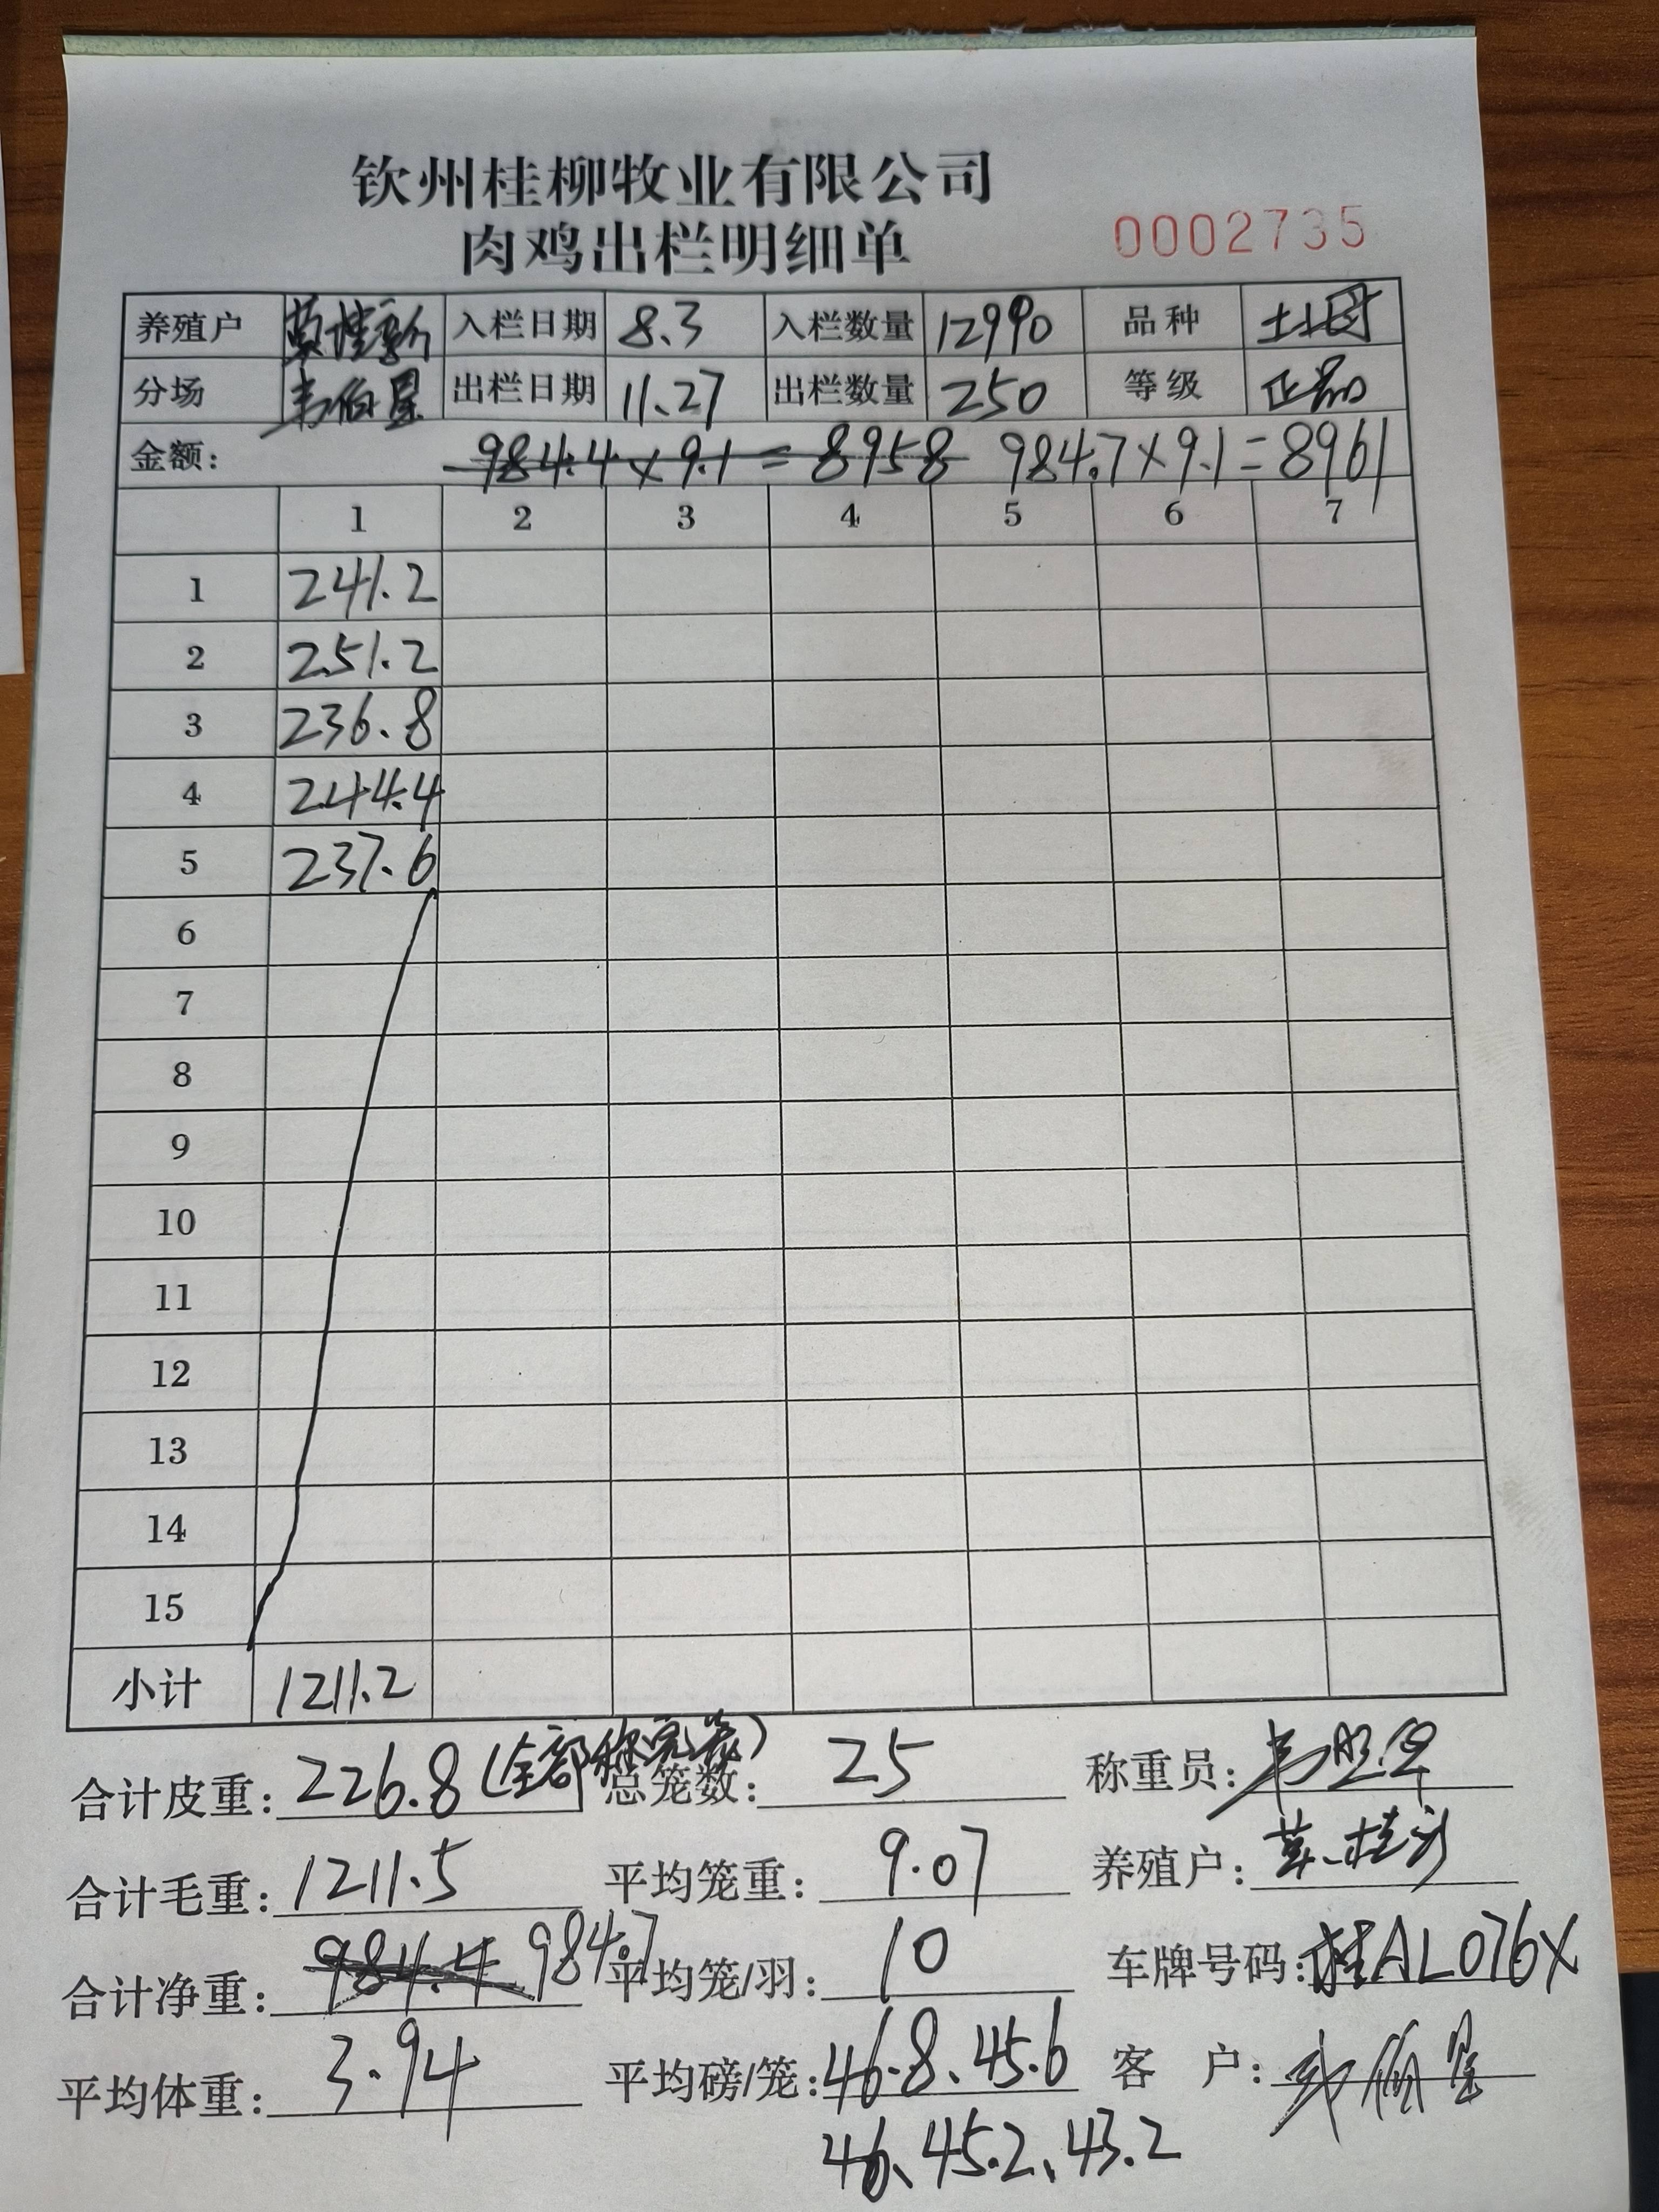 钦州桂柳牧业有限公司
肉鸡出栏明细单 0002735
养殖户 入栏日期 8.3 入栏数量 12990 品种 土
分场 韦伯星 出栏日期 11.27 出栏数量 250 等级 正品
金额: 984.4×9.1=8958 984.7×9.1=8961
1 2 3 4 5 6 7
1 241.2
2 251.2
3 236.8
4 244.4
5 237.6
6
7
8
9
10
11
12
13
14
15
小计 1211.2
合计皮重: 226.8(全部称完装) 总笼数: 25 称重员:
合计毛重: 1211.5 平均笼重: 9.07 养殖户:
合计净重: 984.4 984.7 平均笼/羽: 10 车牌号码: 桂AL076X
平均体重: 3.94 平均磅/笼: 46.8、45.6 客 户:
46、45.2、43.2